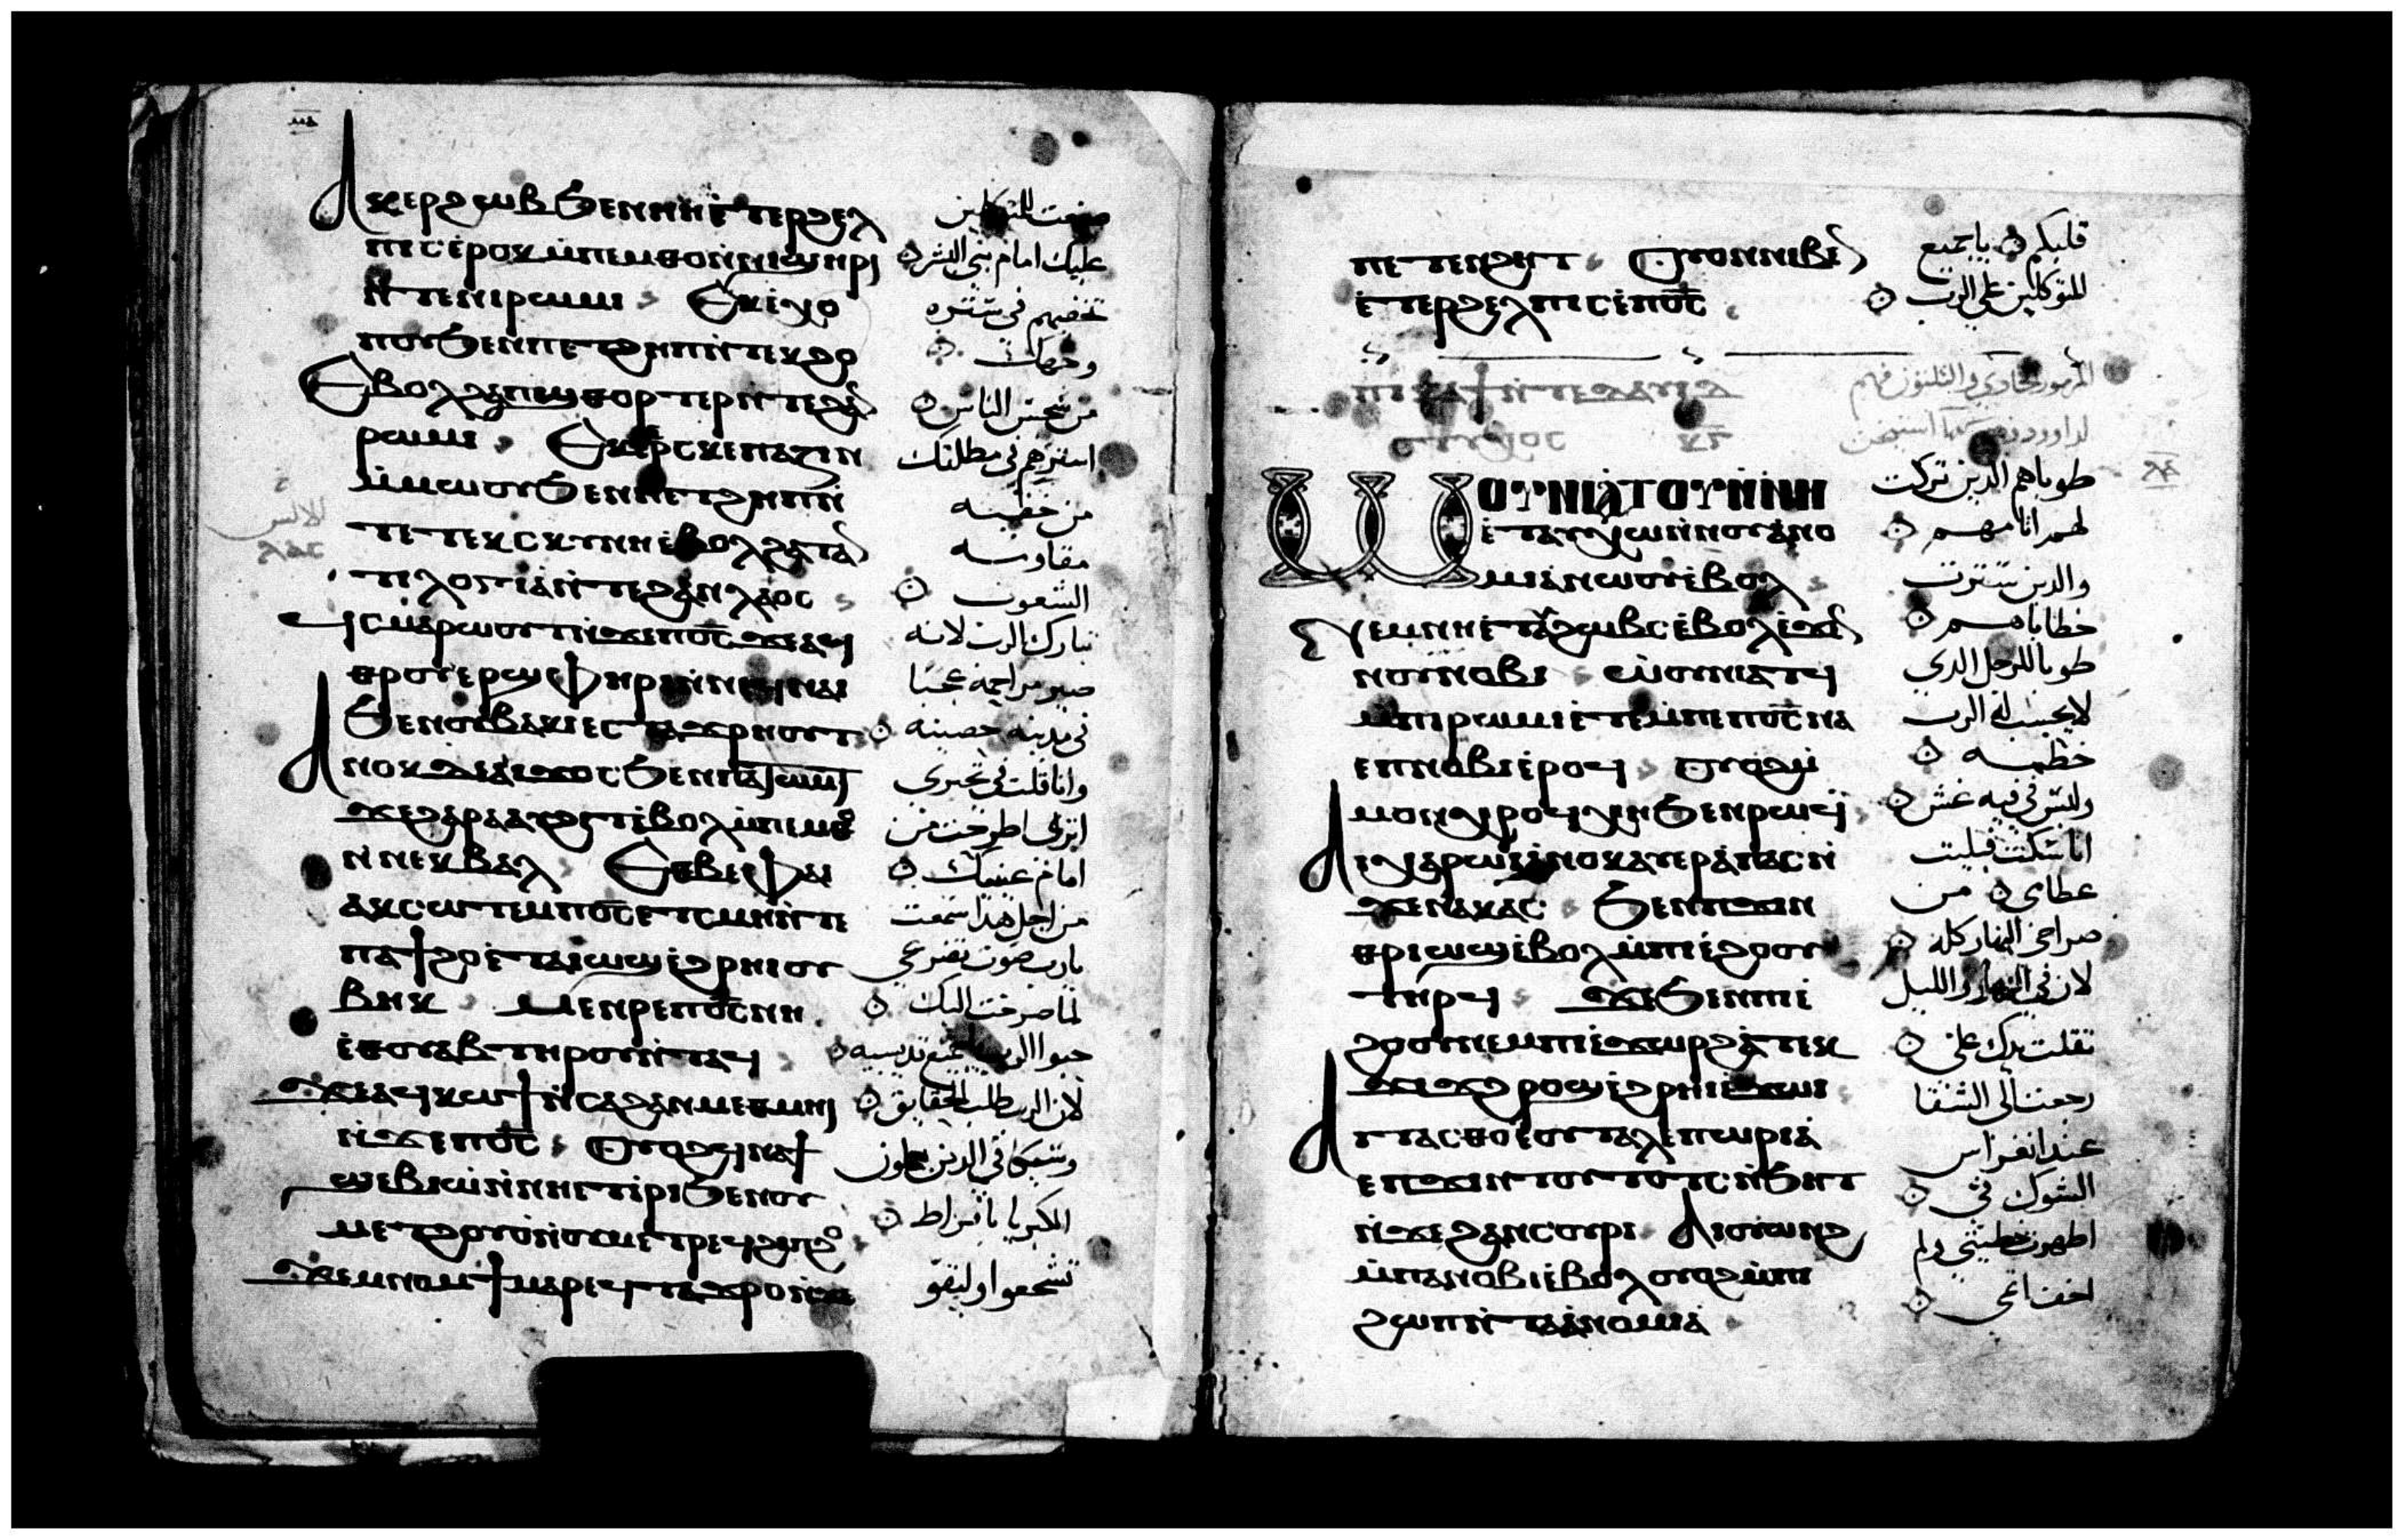 ⲙⲁ
Ⲁⲕⲉⲣϩⲱⲃ ϧⲉⲛ ⲛⲏⲉⲧⲉⲣϩⲉⲗ
ⲡⲓⲥ ⲉⲣⲟⲕ ⲙⲡⲉⲙⲑⲟ ⲛⲛⲓϣⲏⲣⲓ
ⲛⲧⲉ ⲛⲓⲣⲱⲙⲓ Ⲉⲕⲉⲭⲟ
ⲡⲟⲩ ϧⲉⲛ ⲡⲉⲧϩⲏⲡ ⲛⲧⲉ ⲡⲉⲕϩⲟ
Ⲉⲃⲟⲗ ϩⲁ ⲡϣⲑⲟⲣⲧⲉⲣ ⲛⲧⲉ ϩⲁⲛ
ⲣⲱⲙⲓ Ⲉⲕⲉⲣⲥⲕⲉⲡⲁⲍⲓⲛ
ⲙⲙⲱⲟⲩ ϧⲉⲛ ⲡⲉⲧϩⲏⲡ ⲛ
ⲧⲉ ⲧⲉⲕⲥⲕⲩⲛⲏ ⲉⲃⲟⲗ ϩⲁ ⲧⲁⲛ
ⲧⲓⲗⲟⲅⲓⲁ ⲛⲧⲉ ϩⲁⲛⲗⲁⲟⲥ
ϥⲥⲙⲁⲣⲱⲟⲩⲧ ⲛϫⲉ ⲡⲟⲥ ϫⲉ ⲁϥ
ⲑⲣⲟⲩⲉⲣϣⲫⲏⲣⲓ ⲙⲡⲉϥⲛⲁⲓ
ϧⲉⲛ ⲟⲩⲃⲁⲕⲓ ⲉⲥⲧⲁϫⲣⲏⲟⲩⲧ
Ⲁⲛⲟⲕ ⲇⲉ ⲁⲓϫⲟⲥ ϧⲉⲛ ⲡⲁⲧⲱⲙⲧ
ϫⲉ ϩⲁⲣⲁ ⲁⲩϩⲓⲧ ⲉⲃⲟⲗ ⲙⲡⲉⲙⲑⲟ
ⲛⲛⲉⲕⲃⲁⲗ Ⲉⲑⲃⲉ ⲫⲁⲓ
ⲁⲕⲥⲱⲧⲉⲙ ⲡⲟⲥ ⲉⲧⲥⲙⲏ ⲛⲧⲉ
ⲡⲁϯϩⲟ ⲉⲧⲁⲓⲱϣ ⲉϩⲣⲏⲓ ⲟⲩ
ⲃⲏⲕ ⲙⲉⲛⲣⲉ ⲡⲟⲥ ⲛⲏ
ⲉⲑⲟⲩⲁⲃ ⲧⲏⲣⲟⲩ ⲛⲧⲁϥ
ϫⲉ ⲁϥⲕⲱϯ ⲛⲥⲁ ϩⲁⲛⲙⲉⲑⲙⲏⲓ
ⲛϫⲉ ⲡⲟⲥ ⲟⲩⲟϩ ϥⲛⲁϯ
ϣⲉⲃⲓⲱ ⲛⲛⲏⲉⲧⲓⲣⲓ ϧⲉⲛ ⲟⲩ
ⲙⲉⲧϩⲟⲩⲟ ⲛⲟⲩⲙⲉⲧⲣⲉϥϭⲓⲥⲓ ⲛϩⲟ
ϫⲉⲙⲛⲟⲙϯ ⲙⲁⲣⲉϥⲧⲁϫⲣⲟ ⲛϫⲉ
صنعت للمتوكلين
عليك امام بني البشر
تخفيهم في ستره
وجهك
من سجس الناس
استرهم في مظلتك
من خفية
مقاومة
الشعوب
تبارك الرب لانه
صير مراحمه عجبا
في مدينه حصينه
وانا قلت في تحيري
اترى اطرحت من
امام عينيك
من اجل هذا سمعت
يارب صوت تضرعي
لما صرخت اليك
حبوا الرب يا جميع قديسيه
لان الرب طلب الحقايق
تشجعوا وليتقو
ⲡⲉⲧⲉⲛϩⲏⲧ ⲟⲩⲟⲛ ⲛⲓⲃⲉⲛ
ⲉⲧⲉⲣϩⲉⲗⲡⲓⲥ ⲉⲡⲟⲥ
ⲡⲓⲕⲁϯ ⲛⲧⲉ ⲇⲁⲩⲓⲇ
Ⲱⲟⲩⲛⲓⲁⲧⲟⲩ ⲛⲛⲏ
ⲉⲧⲁⲩⲭⲱ ⲛⲛⲟⲩⲁⲛⲟ
ⲙⲓⲁ ⲛⲱⲟⲩ ⲉⲃⲟⲗ
ⲛⲉⲙ ⲛⲏⲉⲧⲁⲩϩⲱⲃⲥ ⲉⲃⲟⲗ ⲉϫⲉⲛ
ⲛⲟⲩⲛⲟⲃⲓ ⲱⲟⲩⲛⲓⲁⲧϥ
ⲙⲡⲓⲣⲱⲙⲓ ⲉⲧⲉ ⲙⲡⲉ ⲡⲟⲥ ⲛⲁ
ⲉⲡ ⲛⲟⲃⲓ ⲉⲣⲟϥ ⲟⲩⲟϩ ⲙ
ⲙⲟⲛ ⲭⲣⲟϥ ⲭⲏ ϧⲉⲛ ⲣⲱϥ
Ⲁⲓⲭⲁⲣⲱⲓ ⲁⲛⲟⲕ ⲁⲩⲉⲣⲁⲡⲁⲥ ⲛ
ϫⲉ ⲛⲁⲕⲁⲥ ϧⲉⲛ ⲡϫⲓⲛ
ⲑⲣⲓⲱϣ ⲉⲃⲟⲗ ⲙⲡⲓⲉϩⲟⲟⲩ
ⲧⲏⲣϥ ϫⲉ ϧⲉⲛ ⲡⲓⲉ
ϩⲟⲟⲩ ⲛⲉⲙ ⲡⲓⲉϫⲱⲣϩ ⲁ ⲧⲉⲕ
ϫⲓϫ ϩⲣⲟϣ ⲉϩⲣⲏⲓ ⲉϫⲱⲓ
Ⲁⲓⲧⲁⲥⲑⲟ ⲉⲩⲧⲁⲗⲉⲡⲱⲣⲓⲁ
ⲉⲡϫⲓⲛⲧⲟⲩⲧⲟⲧⲥ ⲛϧⲏⲧ
ⲛϫⲉ ϩⲁⲛⲥⲟⲩⲣⲓ Ⲁⲓⲟⲩⲱⲛϩ
ⲙⲡⲁⲛⲟⲃⲓ ⲉⲃⲟⲗ ⲟⲩⲟϩ ⲙⲡⲓ
ϩⲱⲡ ⲛⲧⲁⲁⲛⲟⲙⲓⲁ
قلبكم يا جميع
المتوكلين على الرب
المزمور الحادي والثلثون فهم
طوباهم الذين تركت
لهم اثامهم
والذين سترت
خطاياهم
طوبا للرجل الذي
لا يحسب له الرب
خطيه
وليس في فيه غش
انا سكت فبليت
عظامي من
صراخي النهار كله
لان في النهار والليل
ثقلت يدك علي
رجعت الى الشقا
عند انغراس
الشوك في
اظهرت خطيتي ولم
اخف اثمي